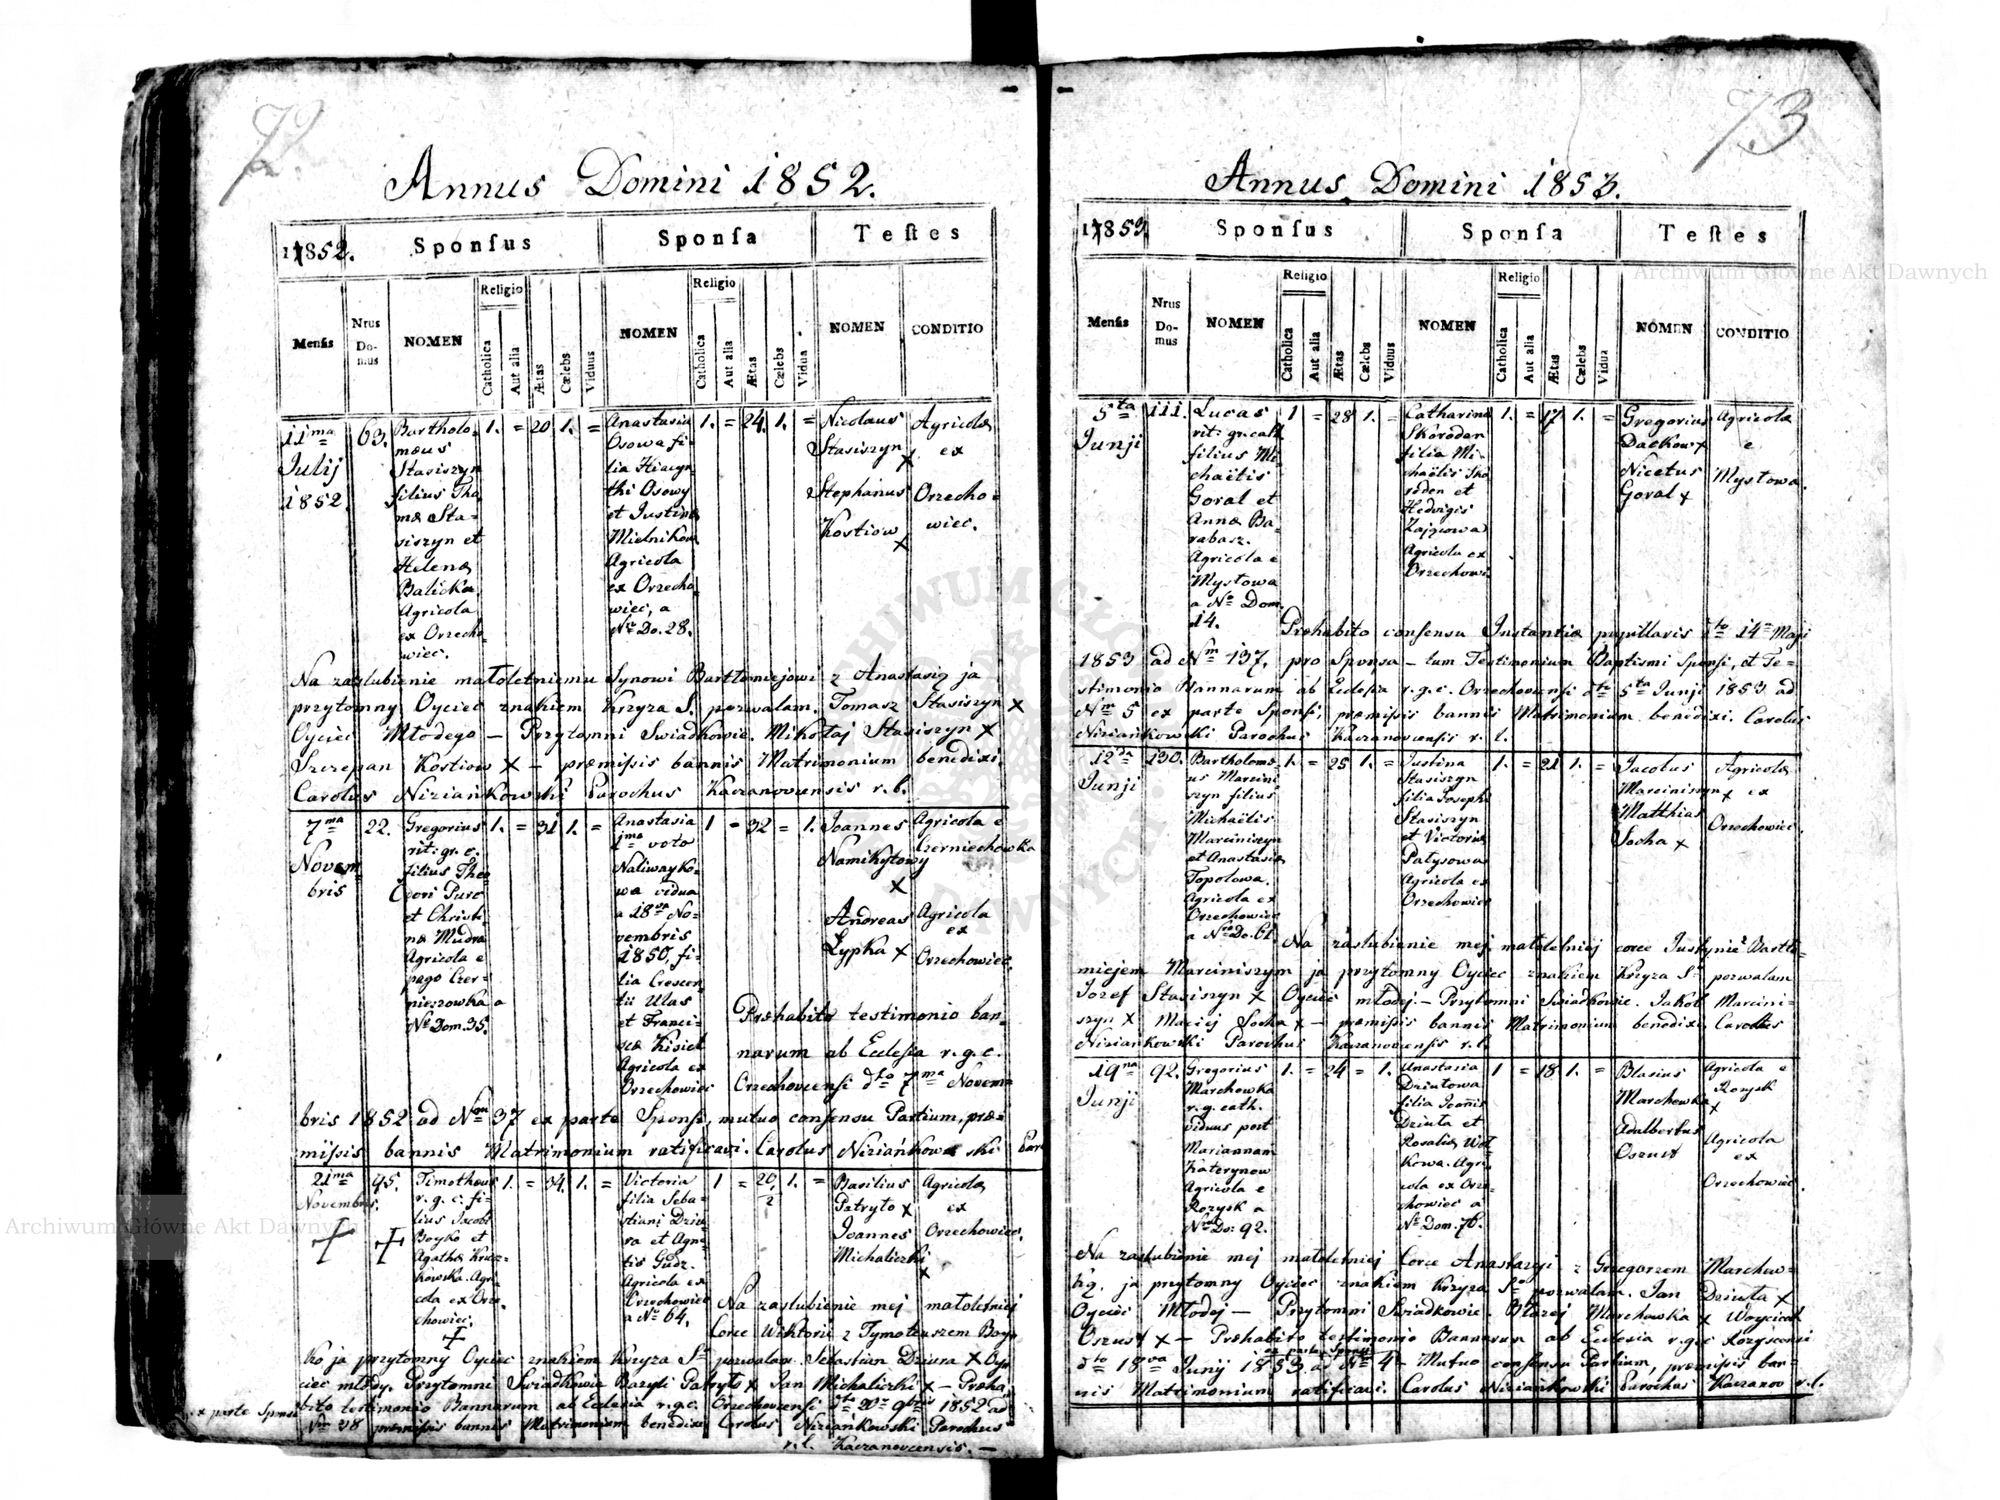 72.
Annus Domini 1852.
11852. Sponſus Sponſa Teſtes
Menſis Nrus Domus NOMEN Religio Catholica Aut alia Ætas Cælebs Viduus NOMEN Religio Catholica Aut alia Ætas Cælebs Vidua NOMEN CONDITIO
11ma
Julij
1852.
63.
Bartholo-
mæus
Stasiszyn
filius Tho
mæ Sta-
siszyn et
Helenæ
Balicka
Agricola
ex Orzecho
wiec.
1. = 20 1. =
Anastasia
Osowa fi-
lia Hiacyn
thi Osowy
et Justinæ
Mielnikow
Agricola
ex Orzecho
wiec, a
Nro Do. 28.
1. = 24. 1. =
Nicolaus
Stasiszyn
x
Stephanus
Kostiow
x
Agricolæ
ex
Orzecho-
wiec.
Na zaslubienie małoletniemu Synowi Bartłomiejowi z Anastasią ja
przytomny Oyciec znakiem Krzyza S. pozwalam. Tomasz Stasiszyn x
Oyciec Młodego — Przytomni Swiadkowie. Mikołaj Stasiszyn x
Szczepan Kostiow x — præmiſsis bannis Matrimonium benedixi
Carolus Niziańkowski Parochus Kaczanovcensis r. l.
7ma
Novem
bris
22.
Gregorius
rit: gr. c.
filius Theo
dori Purc
et Christi
næ Mudra
Agricola e
pago Czer-
niezowka a
No Dom. 35.
1. = 31 1. =
Anastasia
1mo voto
Naliwayko-
wa vidua
a 18va No-
vembris
1850, fi-
lia Crescen
tii Ulas
et Franci-
scæ Kisiel
Agricola ex
Orzechowiec
1 = 32 = 1.
Joannes
Namikytowy
x
Andreas
Lypka x
Agricola e
Czerniechowka
Agricola
ex
Orzechowiec.
Præhabito testimonio ban-
narum ab Ecclesia r. g. c.
Orzechovcensi dto 7ma Novem
bris 1852 ad Nm 37 ex parte Sponsi, mutuo consensu Partium, præ-
miſsis bannis Matrimonium ratificavi. Carolus Niziańkowski Par
21ma
Novembris.
95.
Timotheus
r. g. c. fi-
lius Jacobi
Boyko et
Agathæ Krucz-
kowska Agri
cola ex Orze.
chowiec.
1. = 34. 1. =
Victoria
filia Seba-
stiani Dziu-
ra et Agne-
tis Gudz.
Agricola ex
Orzechowiec
a No 64.
1 = 20 1. =
Basilius
Patryło x
Joannes
Michaliczki
x
Agricolæ
ex
Orzechowiec.
Na zaslubienie mej małoletniej
Corce Wiktorii z Tymoteuszem Boy
ko ja przytomny Oyciec znakiem Krzyza S. pozwalam. Sebastian Dziura x Oy
ciec młody. Przytomni Swiadkowie Bazyli Patryło x Jan Michaliczki x — Præha
bito testimonio Bannarum ab Ecclesia r. g. c. Orzechovcensi dto 20 9bris 1852 ad
ex parte Sponsi
Nm 38 præmiſsis bannis Matrimonium benedixi Carolus Niziańkowski Parochus
r. l. Kaczanovcensis. —
73
Annus Domini 1853.
11853. Sponſus Sponſa Teſtes
Menſis Nrus Domus NOMEN Religio Catholica Aut alia Ætas Cælebs Viduus NOMEN Religio Catholica Aut alia Ætas Cælebs Vidua NOMEN CONDITIO
5ta
Junji
111.
Lucas
rit: gr. cath
filius Mi-
chaëlis
Goral et
Annæ Ba-
rabasz.
Agricola e
Mystowa
a No Dom.
14.
1 = 28 1. =
Catharina
Skoroden
filia Mi-
chaëlis Sko
roden et
Hedvigis
Zajzcowa
Agricola ex
Orzechowi
1. = 17 1. =
Gregorius
Daekow x
Nicetus
Goral x
Agricola
e
Mystowa.
Præhabito consensu Instantiæ pupillaris dto 14 Maji
1853 ad Nm 137. pro Sponsa — tum Testimonium Baptismi Sponsi, et Te-
stimonio Bannarum ab Ecclesia r. g. c. Orzechovcensi dto 5ta Junji 1853 ad
Nm 5 ex parte Sponsi, præmiſsis bannis Matrimonium benedixi. Carolus
Niziańkowski Parochus Kaczanovcensis r. l.
12da
Junji
130.
Bartholomæ
us Marcini
szyn filius
Michaëlis
Marciniszyn
et Anastasiæ
Topolowa.
Agricola ex
Orzechowiec
a Nro Do. 61
1. = 25 1. =
Justina
Stasiszyn
filia Josephi
Stasiszyn
et Victoriæ
Patysowa
Agricola ex
Orzechowiec
1. = 21 1. =
Jacobus
Marciniszyn
x
Matthias
Socha x
Agricolæ
ex
Orzechowiec.
Na zaslubienie mej małoletniej corce Justynie z Bartło-
miejem Marciniszym ja przytomny Oyciec znakiem Krzyza So pozwalam
Jozef Stasiszyn x Oyciec młodej. — Przytomni Swiadkowie. Jakób Marcini-
szyn x Maciej Socha x — præmiſsis bannis Matrimonium benedixi Carolus
Niziańkowski Parochus Kaczanovcensis r. l.
19na
Junji
92.
Gregorius
Marchowka
r. g. cath.
viduus post
Mariannam
Katerynow
Agricola e
Rozysk a
No Do: 92.
1. = 24 = 1.
Anastasia
Dziutowa
filia Joannis
Dziuta et
Rosaliæ Woł-
kowa. Agri-
cola ex Orze-
chowiec a
No Dom. 76.
1 = 18 1. =
Blasius
Marchowka
x
Adalbertus
Oszust
Agricola e
Rozysk
Agricola
ex
Orzechowiec.
Na zaslubienie mej małoletniej Corce Anastazyi z Grzegorzem Marchow-
ką, ja przytomny Oyciec znakiem Krzyza So pozwalam. Jan Dziuta x
Oyciec Młodej — Przytomni Swiadkowie. Błażej Marchowka x Woyciech
Oszust x — Præhabito testimonio Bannarum ab Ecclesia r. g. c. Rozyscensi
ex parte Sponsi
dto 18va Junij 1853. ad Nm 4 — Mutuo consensu Partium, præmiſsis ban-
nis Matrimonium ratificavi. Carolus Niziańkowski Parochus Kaczanov r. l.
Archiwum Główne Akt Dawnych
Archiwum Główne Akt Dawnych